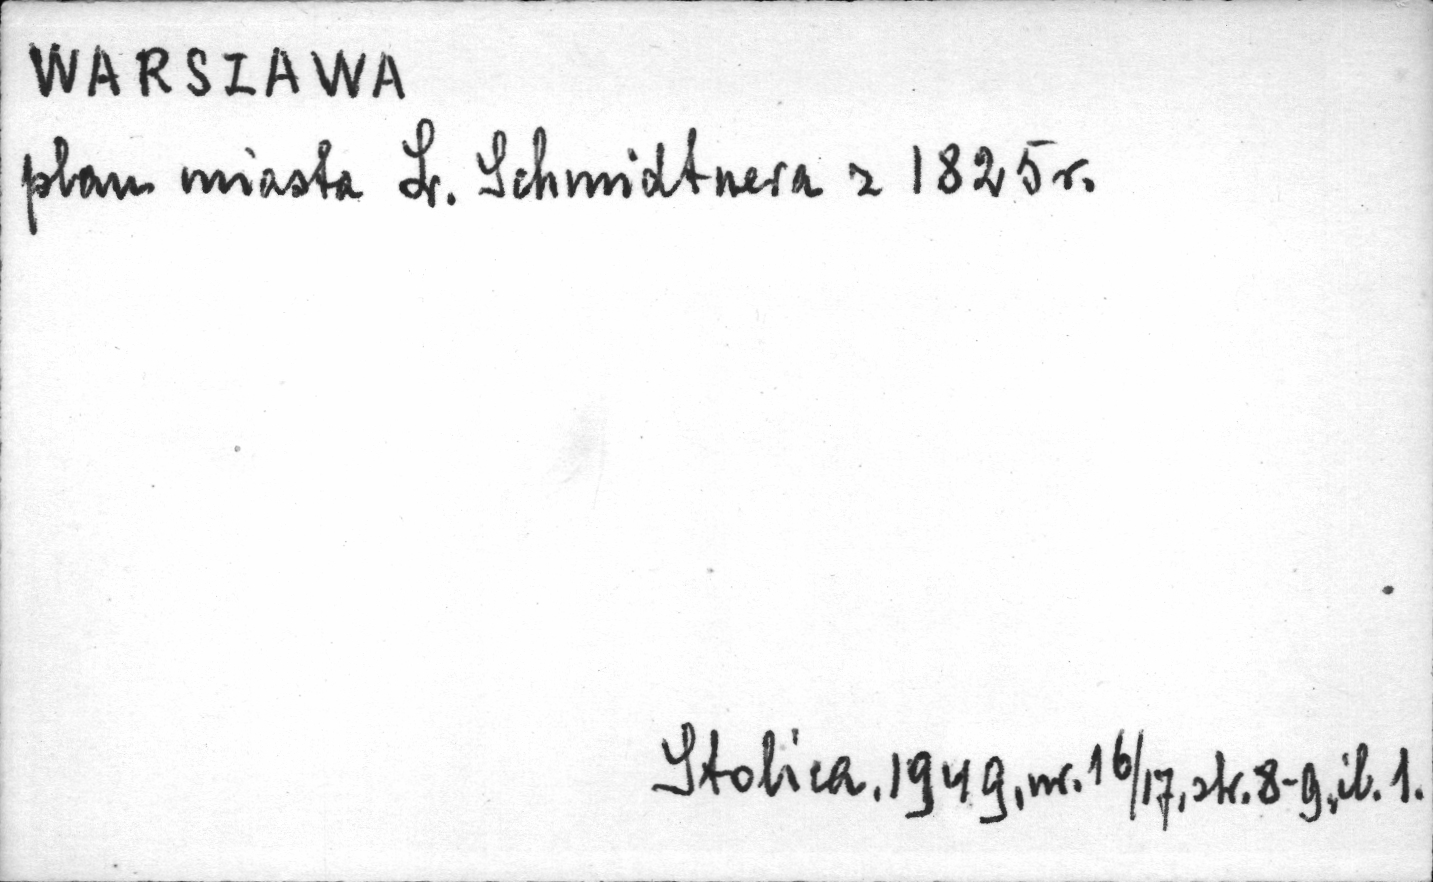 WARSZAWA
plan miasta L. Schmidtnera z 1825 r.
Stolica, 1949, nr. 16/17, str. 8-9, il. 1.